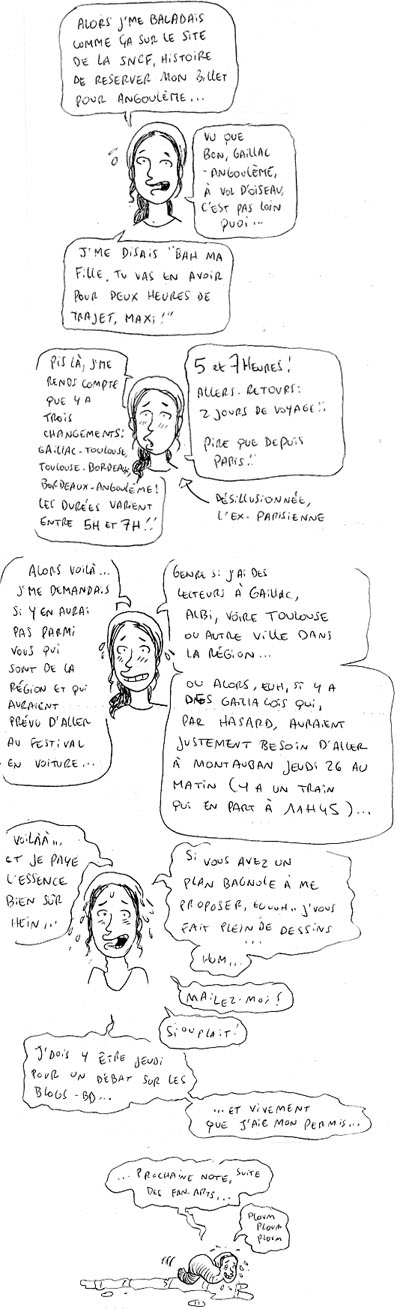 ALORS J'ME BALADAIS
COMME ÇA SUR LE SITE
DE LA SNCF, HISTOIRE
DE RESERVER MON BILLET
POUR ANGOULÈME...
VU QUE
BON, GAILLAC
-ANGOULÊME,
À VOL D'OISEAU,
C'EST PAS LOIN
QUOI...
J'ME DISAIS "BAH MA
FILLE, TU VAS EN AVOIR
POUR DEUX HEURES DE
TRAJET, MAXI!"
PIS LÀ, J'ME
RENDS COMPTE
QUE Y A
TROIS
CHANGEMENTS:
GAILLAC-TOULOUSE,
TOULOUSE-BORDEAUX,
BORDEAUX-ANGOULÊME!
LES DURÉES VARIENT
ENTRE 5H ET 7H!!
5 et 7 HEURES!
ALLERS-RETOURS:
2 JOURS DE VOYAGE!!
PIRE QUE DEPUIS
PARIS!!
DÉSILLUSIONNÉE,
L'EX-PARISIENNE
ALORS VOILÀ...
J'ME DEMANDAIS
SI Y EN AURAI
PAS PARMI
VOUS QUI
SONT DE LA
RÉGION ET QUI
AURAIENT
PRÉVU D'ALLER
AU FESTIVAL
EN VOITURE...
GENRE SI J'AI DES
LECTEURS À GAILLAC,
ALBI, VOIRE TOULOUSE
OU AUTRE VILLE DANS
LA RÉGION...
OU ALORS, EUH, SI Y A
DES GAILLACOIS QUI,
PAR HASARD, AURAIENT
JUSTEMENT BESOIN D'ALLER
À MONTAUBAN JEUDI 26 AU
MATIN (Y A UN TRAIN
QUI EN PART À 11H45)...
VOILÀÀ...
ET JE PAYE
L'ESSENCE
BIEN SÛR
HEIN...
SI VOUS AVEZ UN
PLAN BAGNOLE À ME
PROPOSER, EUUUH.. J'VOUS
FAIT PLEIN DE DESSINS
...
HUM...
MAILEZ-MOI!
SIOUPLAIT!
J'DOIS Y ÊTRE JEUDI
POUR UN DÉBAT SUR LES
BLOGS-BD...
...ET VIVEMENT
QUE J'AIE MON PERMIS...
...PROCHAINE NOTE, SUITE
DES FAN. ARTS...
PLOUM
PLOUM
PLOUM